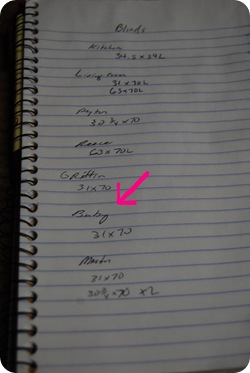 Blinds
Kitchen
34.5 x 34L
Living Room
31 x 70L
63 x 70L
Peyton
30 3/4 x 70
Reece
63 x 70L
Griffin
31 x 70
Baby
31 x 70
Master
31 x 70
30 3/4 x 70 x 2